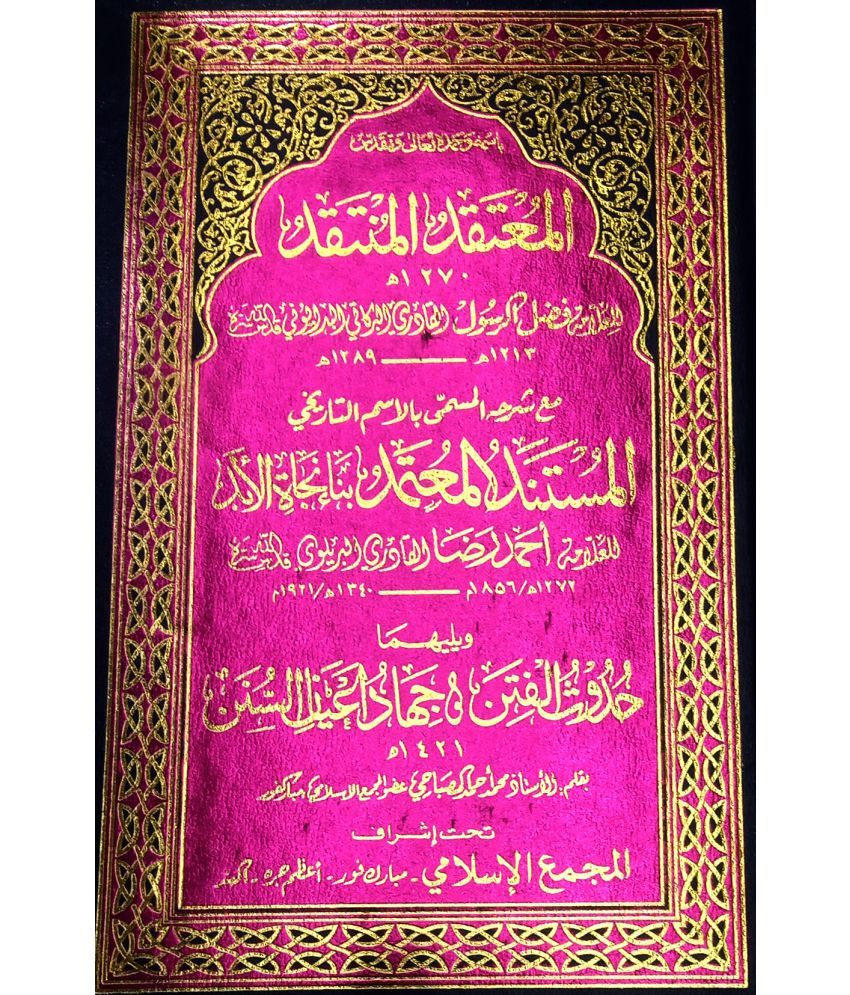 باسمه وحمده تعالى وتقدس
المعتقد المنتقد
١٢٧٠ھ
للعلامة فضل الرسول القادري البركاتي البدايوني قدس سره
١٢١٣ھ ——— ١٢٨٩ھ
مع شرحه المسمّى بالاسم التاريخي
المستند المعتمد بناء نجاة الأبد
للعلامة أحمد رضا القادري البريلوي قدس سره
١٢٧٢ھ/١٨٥٦م ——— ١٣٤٠ھ/١٩٢١م
ويليهما
حُدُوثُ الفِتَن وجِهَادُ أعْيَانِ السُّنَن
١٤٢١ھ
بقلم: الأستاذ محمد أحمد المصباحي عضو المجمع الاسلامي مباركفور
تحت إشراف
المجمع الإسلامي - مبارك فور - أعظم جره - الهند